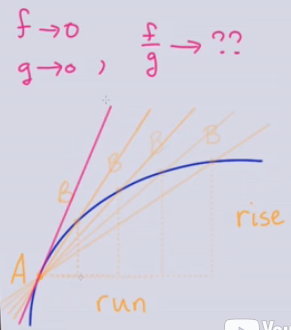 f → 0
g → 0 , f/g → ??
B
B
B
B
A
rise
run
You